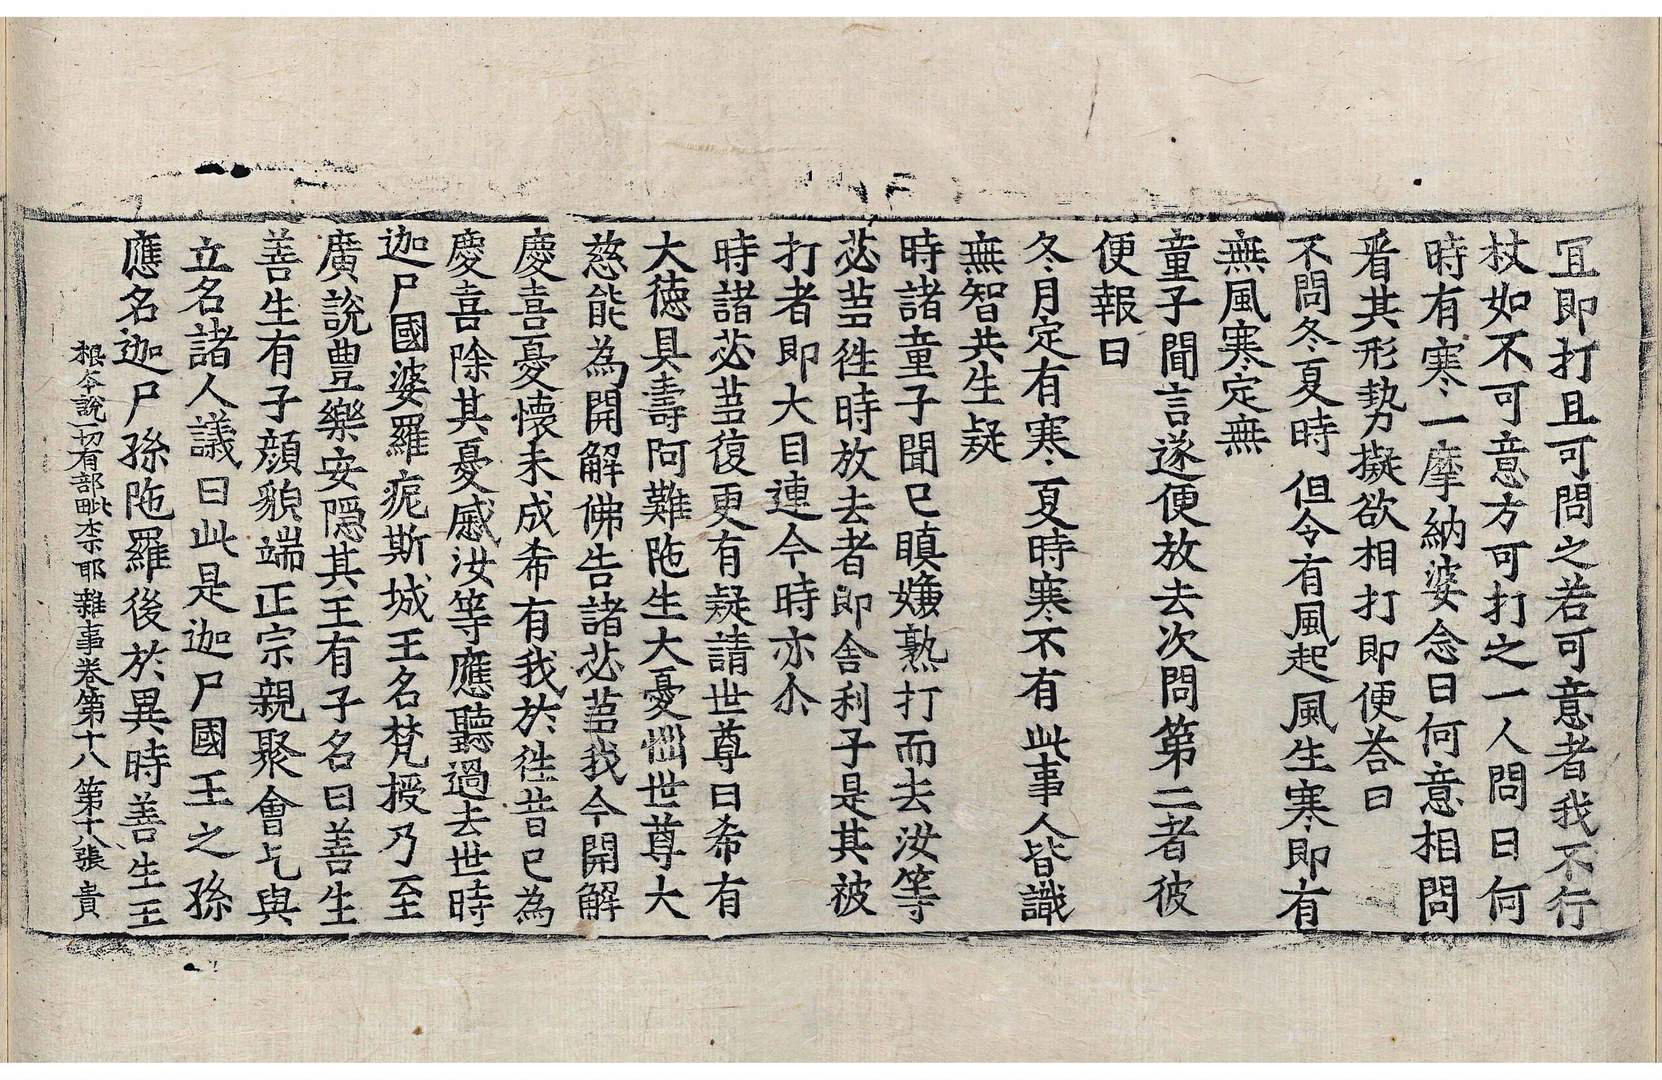 冝即打且可問之若可意者我不行
杖如不可意方可打之一人問曰何
時有寒一摩納婆念曰何意相問
看其形勢擬欲相打即便荅曰
不問冬夏時 但令有風起 風生寒即有
無風寒定無
童子聞言遂便放去次問第二者彼
便報曰
冬月定有寒 夏時寒不有 此事人皆識
無智共生疑
時諸童子聞已瞋嫌熟打而去汝等
苾芻徃時放去者即舍利子是其被
打者即大目連今時亦尒
時諸苾芻復更有疑請世尊曰希有
大徳具壽阿難陁生大憂惱世尊大
慈能為開解佛告諸苾芻我今開解
慶喜憂懐未成希有我於徃昔已為
慶喜除其憂慼汝等應聽過去世時
迦尸國婆羅痆斯城王名梵授乃至
廣說豊樂安隱其王有子名曰善生
善生有子顔貌端正宗親聚會乞與
立名諸人議曰此是迦尸國王之孫
應名迦尸孫陁羅後於異時善生王
根本說一切有部毗柰耶雜事卷第十八 第十八張 貴